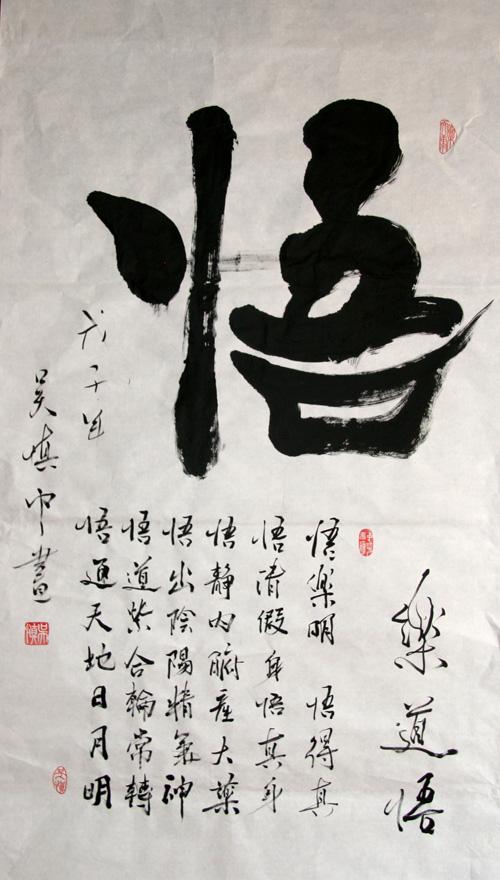 悟
樂道悟
悟樂明 悟得真
悟清假身悟真身
悟靜内腑産大藥
悟出陰陽精氣神
悟道紫合輪常轉
悟通天地日月明
戊子年
吴慎中書